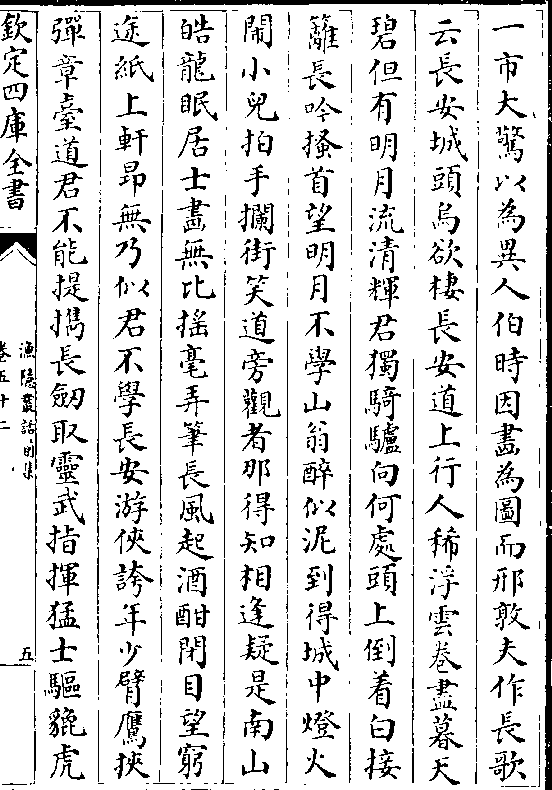 一市大驚以為異人伯時因畫為圖而邢敦夫作長歌
云長安城頭烏欲棲長安道上行人稀浮雲卷盡暮天
碧但有明月流清輝君獨騎驢向何處頭上倒着白接
籬長吟搔首望明月不學山翁醉似泥到得城中燈火
鬧小兒拍手攔街笑道旁觀者那得知相逢疑是南山
皓龍眠居士畫無比搖毫弄筆長風起酒酣閉目望窮
途紙上軒昻無乃似君不學長安游俠誇年少臂鷹挾
彈章臺道君不能提擕長劒取靈武指揮猛士驅貔虎
欽定四庫全書
漁隱叢話前集
卷五十二
五